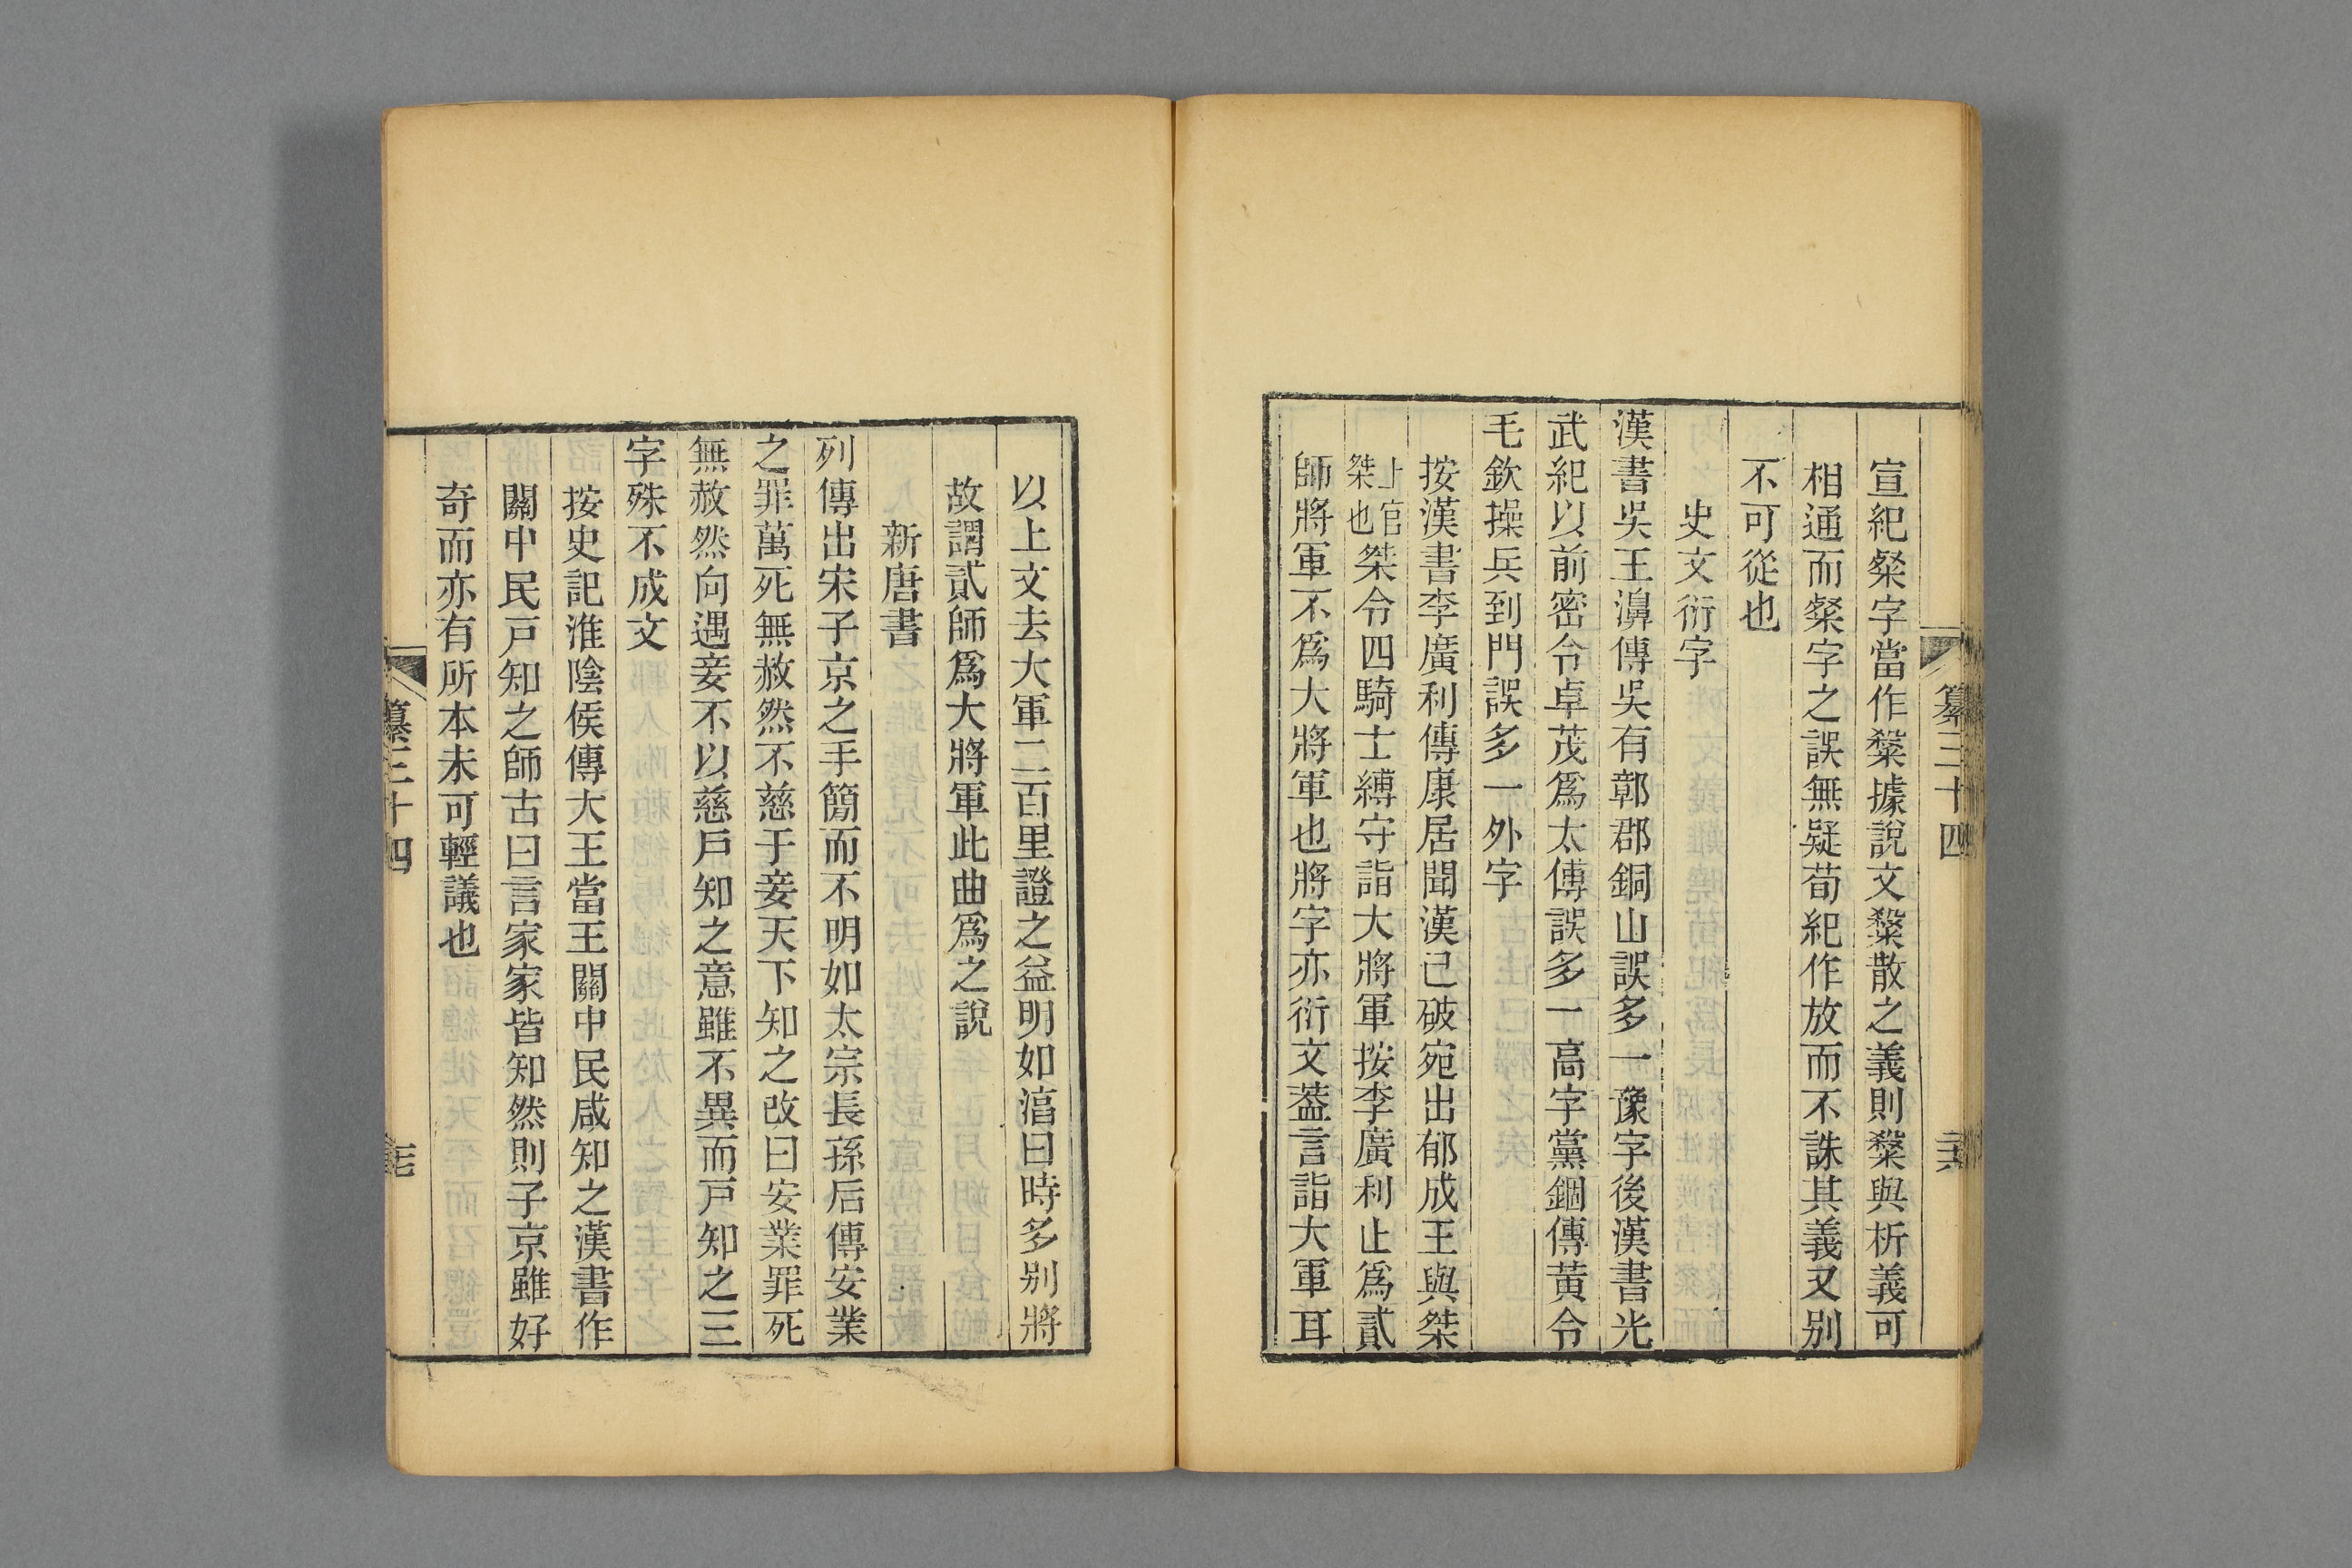 纂三十四
宣紀粲字當作䊝據說文䊝散之義則䊝與析義可
相通而粲字之誤無疑荀紀作放而不誅其義又别
不可從也
史文衍字
漢書吳王濞傳吳有鄣郡銅山誤多一豫字後漢書光
武紀以前密令卓茂爲太傅誤多一高字黨錮傳黄令
毛欽操兵到門誤多一外字
按漢書李廣利傳康居聞漢已破宛出郁成王與桀
上官桀也桀令四騎士縛守詣大將軍按李廣利止爲貳
師將軍不爲大將軍也將字亦衍文葢言詣大軍耳
以上文去大軍二百里證之益明如湻曰時多别將
故謂貳師爲大將軍此曲爲之說
新唐書
列傳出宋子京之手簡而不明如太宗長孫后傳安業
之罪萬死無赦然不慈于妾天下知之改曰安業罪死
無赦然向遇妾不以慈戶知之意雖不異而戶知之三
字殊不成文
按史記淮陰侯傳大王當王關中民咸知之漢書作
關中民戶知之師古曰言家家皆知然則子京雖好
奇而亦有所本未可輕議也
纂三十四